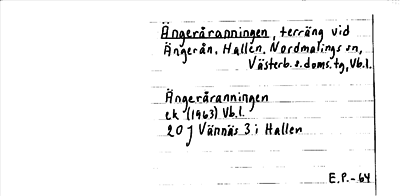 Ängeråranningen, terräng vid
Ängerån, Hallen, Nordmalings sn,
Västerb. s. doms. tg, Vb.l.
Ängeråranningen
ek (1963) Vb.l.
20 J Vännäs 3 i Hallen
E.P.-64